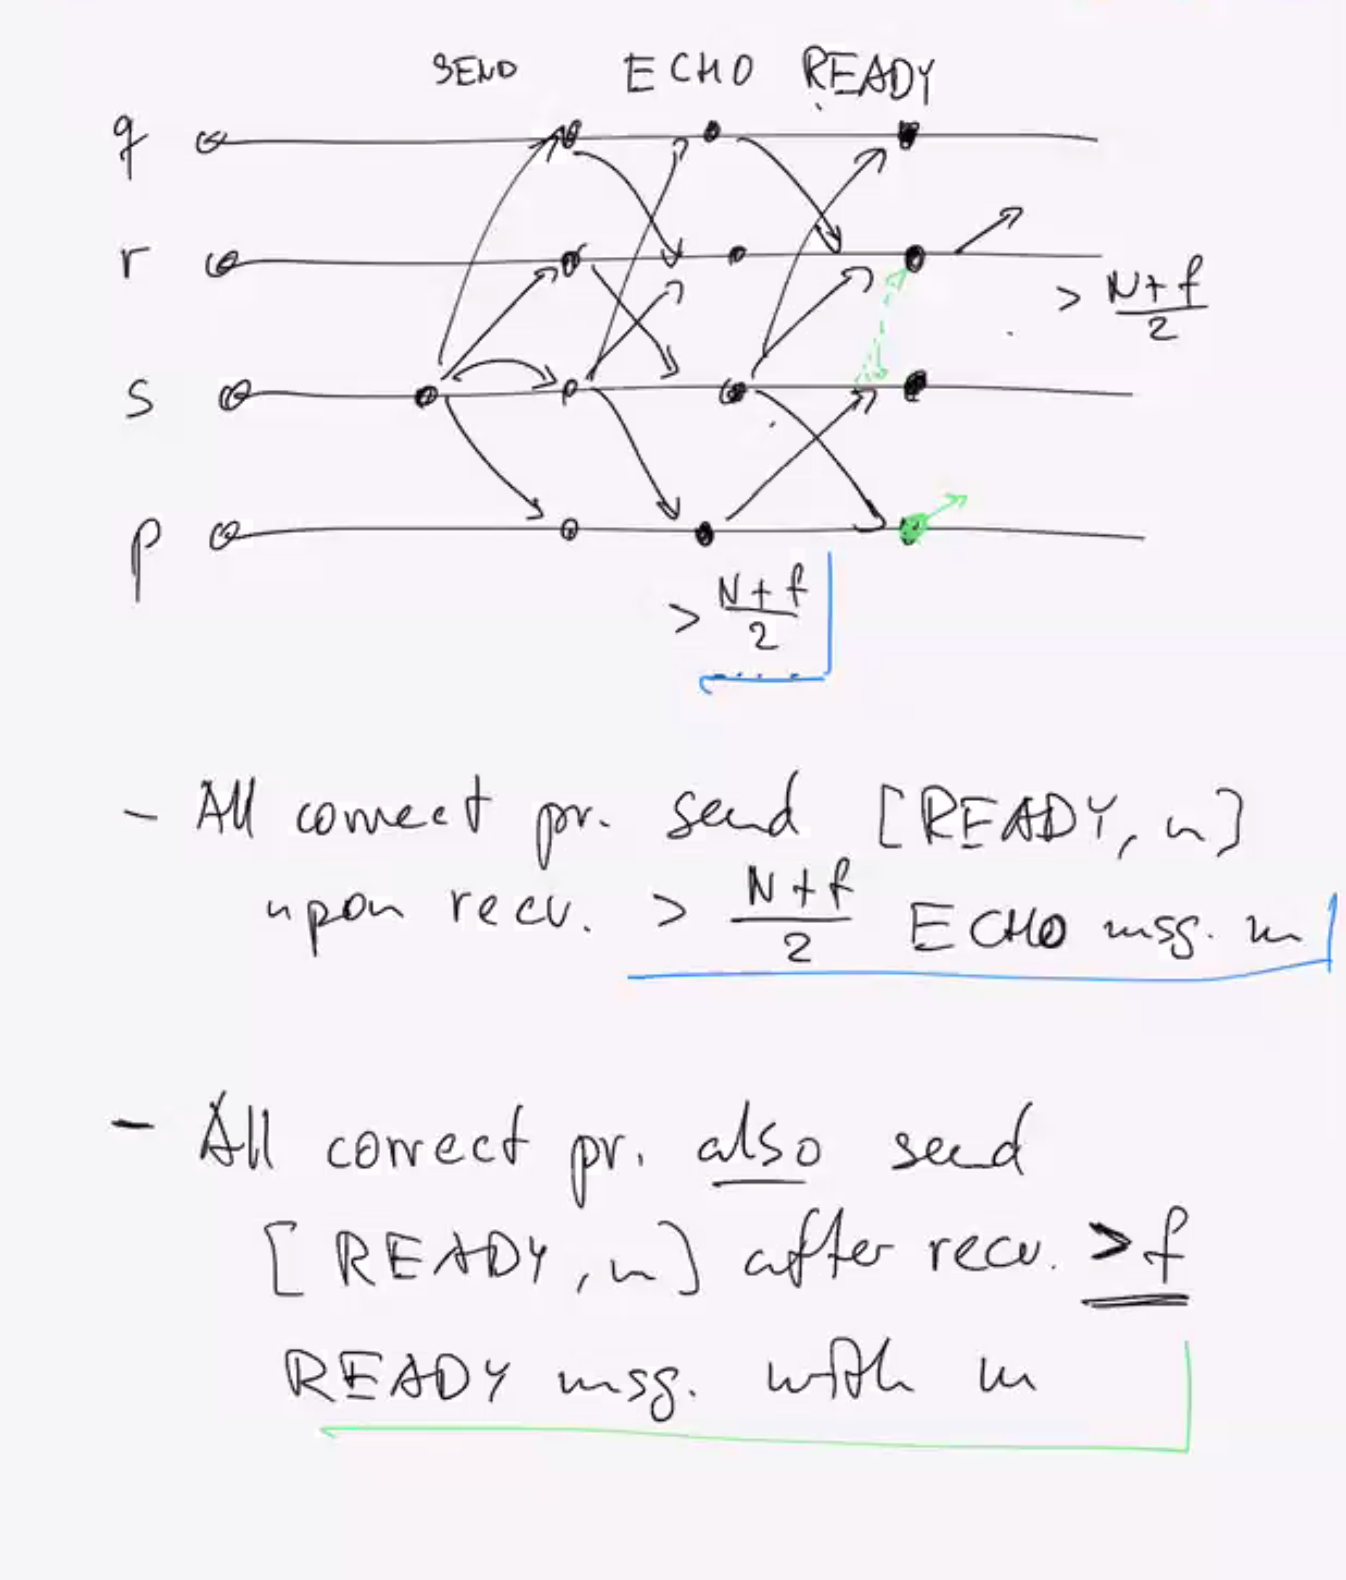 SEND ECHO READY
q
r
> N+f
2
s
p
> N+f
2
- All correct pr. send [READY, m]
upon recv. > N+f
2 ECHO msg. m
- All correct pr. also send
[READY, m] after recv. >f
READY msg. with m